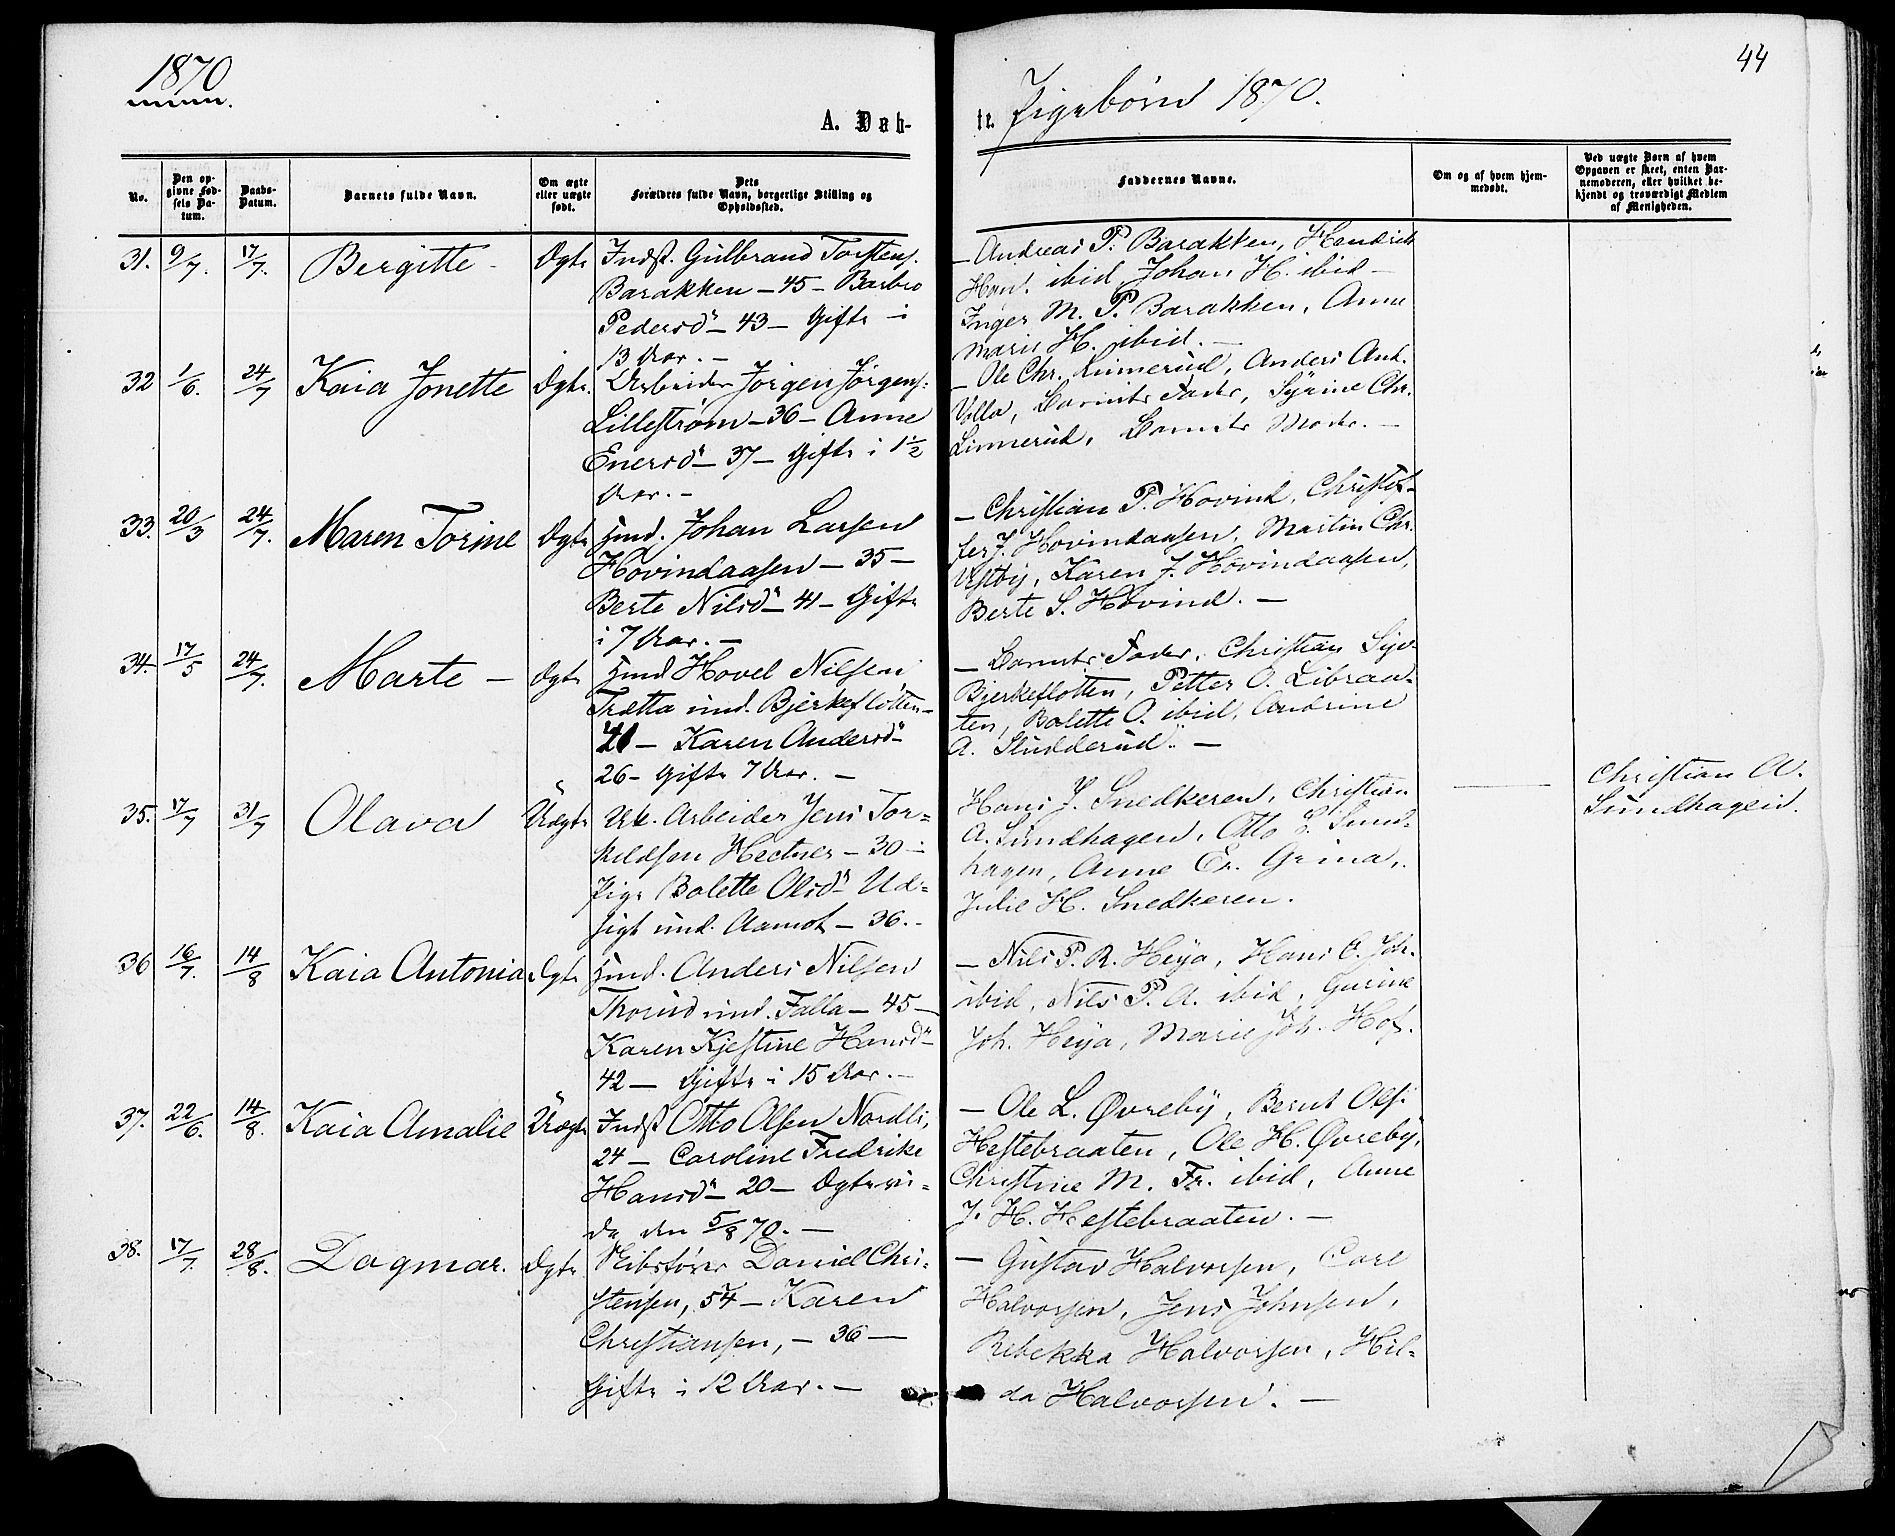 1870
44
A. Døb-
te. Pigebørn 1870.
No.
Den op-
givne Fød-
sels Da-
tum.
Daabs-
Datum.
Barnets fulde Navn.
Om ægte
eller uægte
født.
Dets
Forældres fulde Navn, borgerlige Stilling og
Opholdssted.
Faddernes Navne.
Om og af hvem hjem-
medøbt.
Ved uægte Børn af hvem
Opgaven er skeet, enten Bar-
nemoderen, eller hvilket be-
kjendt og troværdigt Medlem
af Menigheden.
31. 9/7. 17/7. Bergitte - Ægte Indst. Gulbrand Torstens.
Barakken - 45 - Barbro
Pedersd. - 43 - Gifte i
13 Aar. -
- Andreas P. Barakken, Hendrik
Han. ibid, Johan H. ibid -
Inger M. P. Barakken, Anne
Marie H. ibid. -
32 1/6. 24/7 Kaia Jonette Ægte. Arbeider Jørgen Jørgens.
Lillestrøm - 36 - Anne
Enersd. - 37 - Gifte i 1 1/2
Aar. -
- Ole Chr. Linnerud, Anders And.
Volla, Barnets Fader, Syrine Chr.
Linnerud, Barnets Moder. -
33. 20/3 24/7. Maren Torine Ægte Hmd. Johan Larsen
Hovindaasen - 35 -
Berte Nilsd. - 41 - Gifte
i 7 Aar. -
- Christian P. Hovind, Christof-
fer J. Hovindaasen, Martin Chr.
Vestby, Karen J. Hovindaasen,
Berte S. Hovind. -
34. 17/5 24/7. Marte - Ægte Hmd Hovel Nilsen
Trætta und. Bjerkefløtten -
41 - Karen Andersd.
26 - Gifte 7 Aar. -
- Barnets Fader, Christian Syv.
Bjerkefløtten, Petter O. Libraa-
ten, Bolette O. ibid, Andrine
A. Studderud. -
35. 17/7 31/7 Olava Uægte Uk. Arbeider Jens Tor-
kildsen Hectner - 30 -
Pige Bolette Olsd. Ud-
sigt und. Aamot - 36. -
Hans J. Snedkeren, Christian
A. Sundhagen, Otto L. Sund-
hagen, Anne Er. Grina,
Julie H. Snedkeren.
Christian A.
Sundhagen.
36 16/7. 14/8 Kaia Antonia Ægte Hmd. Anders Nilsen
Thorud und. Falla - 45 -
Karen Kjestine Hansd. -
42 - Gifte i 15 Aar. -
- Nils P. R. Heya, Hans O. Joh.
ibid, Nils P. A. ibid, Gurine
Joh. Heya, Marie Joh. Hof.
37. 22/6. 14/8. Kaia Amalie Uægte Indst Otto Olsen Nordli,
24 - Caroline Fredrike
Hansd. - 20 - Ægtevi-
de den 5/8 70. -
- Ole L. Øvreby, Bernt Ols.
Hestebraaten, Ole H. Øvreby,
Christine M. Fr. ibid, Anne
J. H. Hestebraaten. -
38. 17/7. 28/8. Dagmar. Ægte Skibsfører Daniel Chri-
stensen, 54 - Karen
Christiansen, - 36 -
Gifte i 12 Aar. -
- Gustav Halvorsen, Carl
Halvorsen, Jens Johnsen,
Rebekka Halvorsen, Hil-
da Halvorsen. -